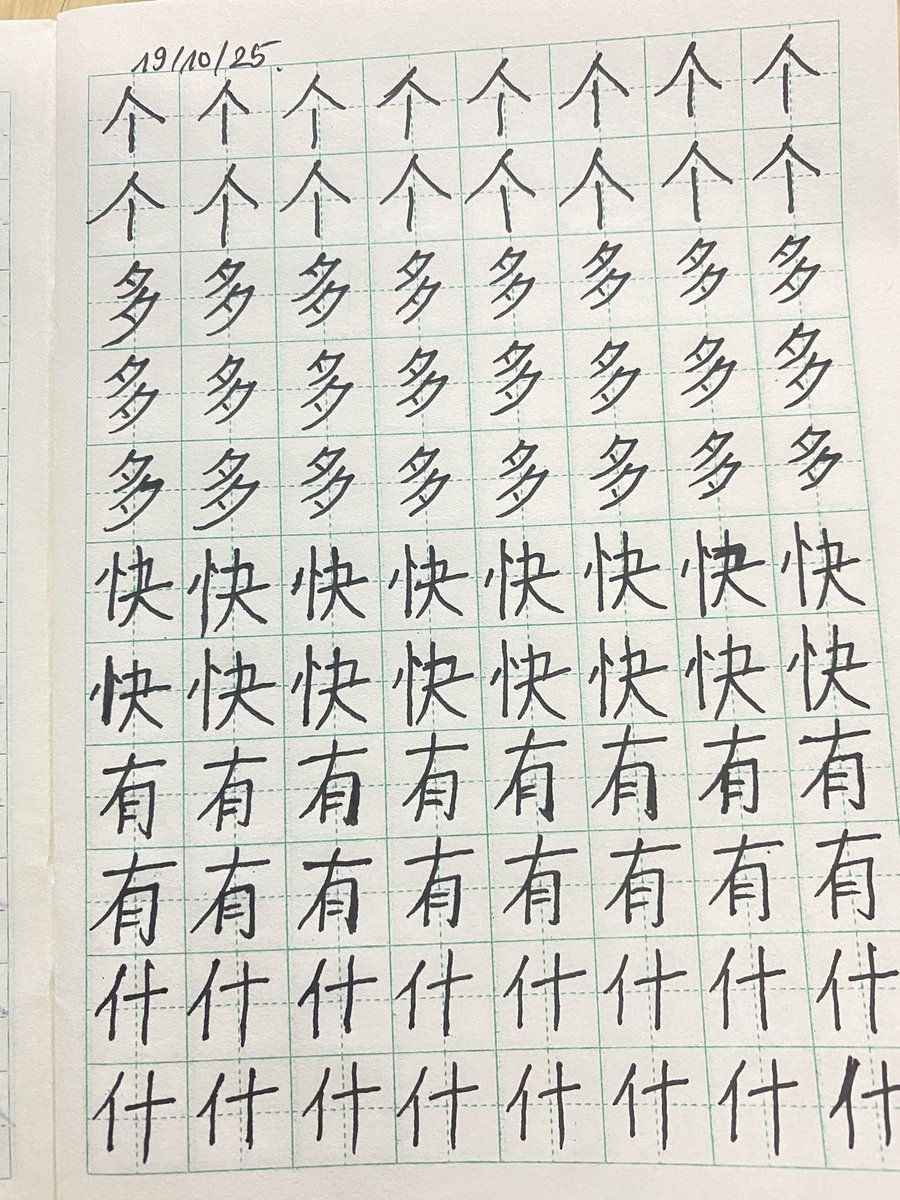 19/10/25.
个 个 个 个 个 个 个 个
个 个 个 个 个 个 个 个
多 多 多 多 多 多 多 多
多 多 多 多 多 多 多 多
多 多 多 多 多 多 多 多
快 快 快 快 快 快 快 快
快 快 快 快 快 快 快 快
有 有 有 有 有 有 有 有
有 有 有 有 有 有 有 有
什 什 什 什 什 什 什 什
什 什 什 什 什 什 什 什